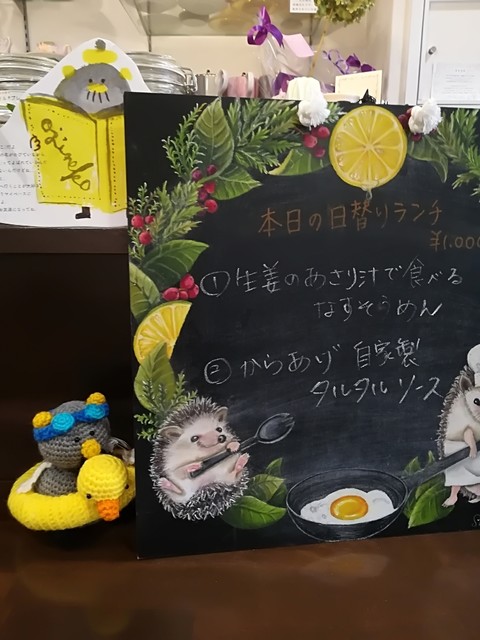 本日の日替りランチ
¥1.000
① 生姜のあさり汁で食べる
なすそうめん
② からあげ 自家製
タルタルソース